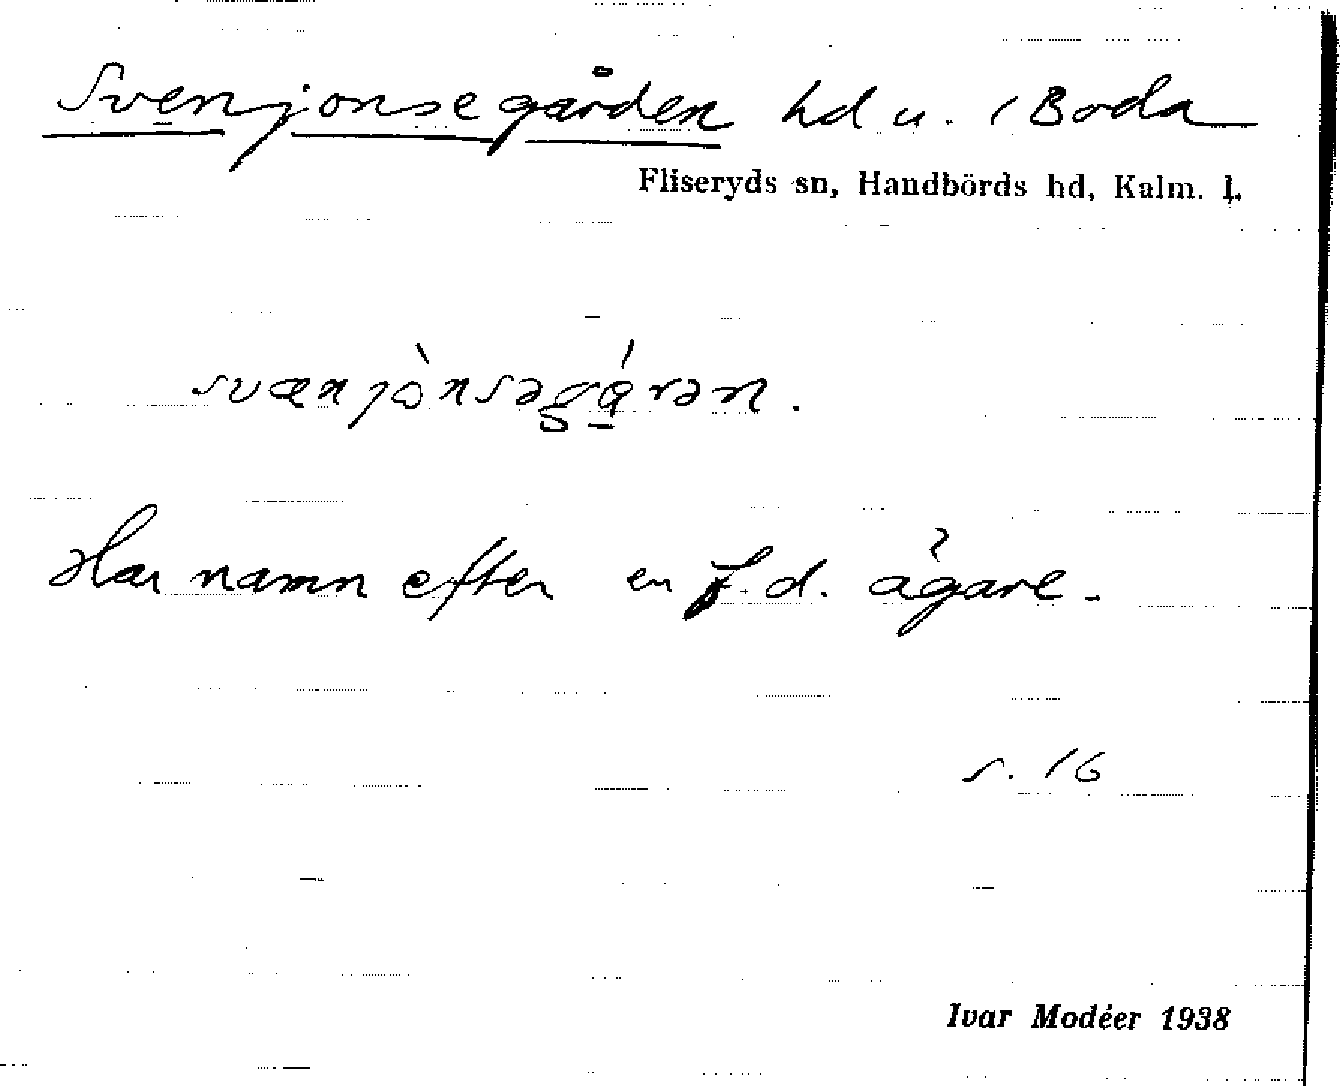 Svenjonsegården hd u. i Boda
Fliseryds sn, Handbörds hd, Kalm. l.
svænjònsəgá̱rən.
Har namn efter en f.d. ägare.
s. 16
Ivar Modéer 1938